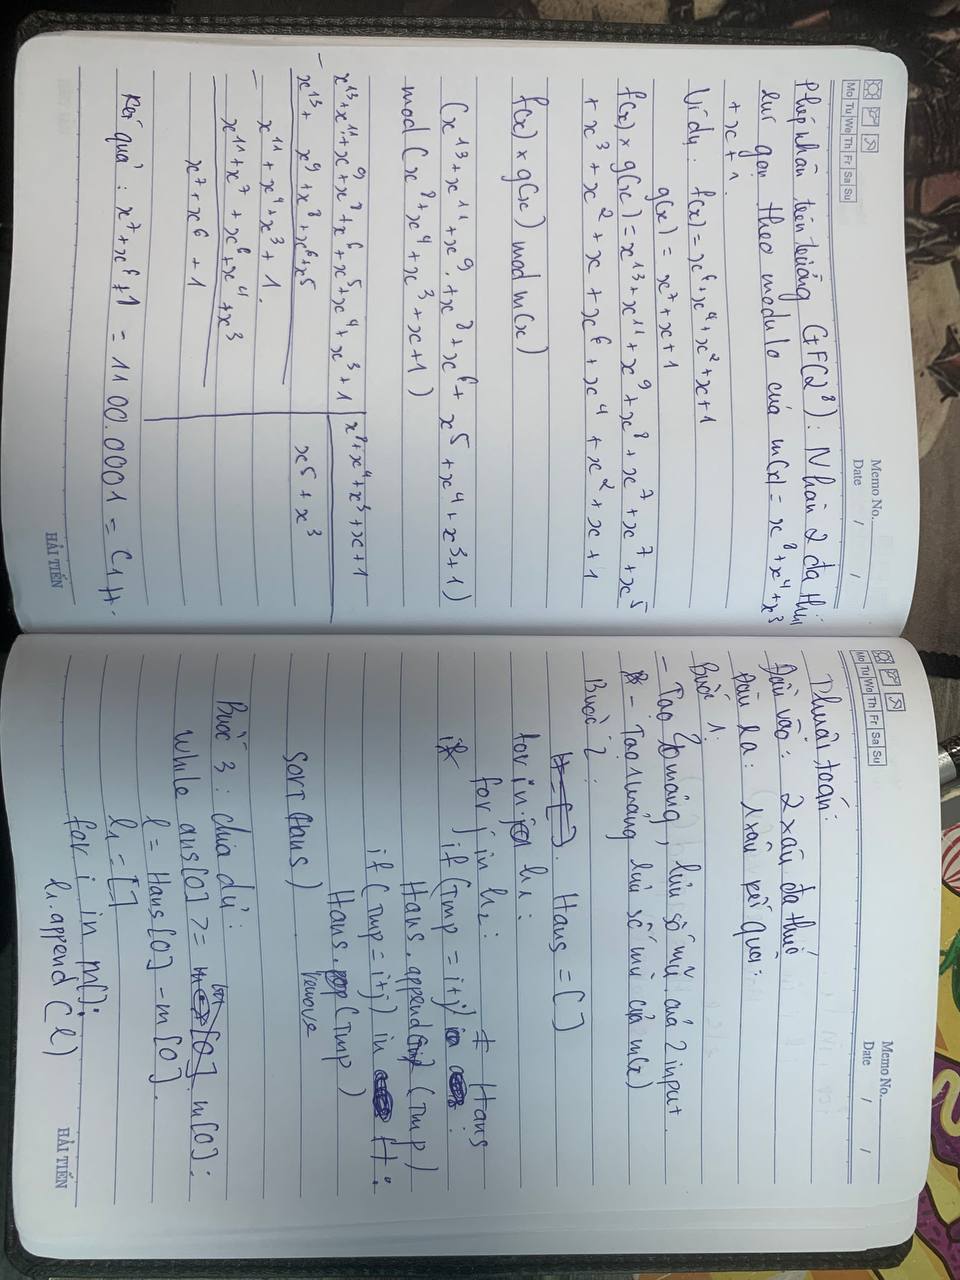 Memo No.
Date / /
Mo Tu We Th Fr Sa Su
Phép nhân trên trường GF(2⁸): Nhân 2 đa thức
rút gọn theo modulo của m(x) = x⁸ + x⁴ + x³
+ x + 1.
Ví dụ: f(x) = x⁶ + x⁴ + x² + x + 1
g(x) = x⁷ + x + 1
f(x) × g(x) = x¹³ + x¹¹ + x⁹ + x⁸ + x⁷ + x⁷ + x⁵
+ x³ + x² + x + x⁶ + x⁴ + x² + x + 1
f(x) × g(x) mod m(x)
(x¹³ + x¹¹ + x⁹ + x⁸ + x⁶ + x⁵ + x⁴ + x³ + 1)
mod (x⁸ + x⁴ + x³ + x + 1)
x¹³ + x¹¹ + x⁹ + x⁸ + x⁶ + x⁵ + x⁴ + x³ + 1
x⁸ + x⁴ + x³ + x + 1
- x¹³ + x⁹ + x⁸ + x⁶ + x⁵
x⁵ + x³
x¹¹ + x⁴ + x³ + 1.
- x¹¹ + x⁷ + x⁶ + x⁴ + x³
x⁷ + x⁶ + 1
Kết quả: x⁷ + x⁶ + 1 = 1100.0001 = C1H.
HẢI TIẾN
Memo No.
Date / /
Mo Tu We Th Fr Sa Su
Thuật toán:
Đầu vào: 2 xâu đa thức
Đầu ra: 1 xâu kết quả:
Bước 1:
- Tạo 2 mảng, lưu số mũ của 2 input.
- Tạo 1 mảng lưu số mũ của m(x)
Bước 2:
Hans = []
for in h₁:
for j in h₂:
≠ Hans
if (Tmp = i+j) :
Hans.append (Tmp)
if (Tmp = i+j) in H:
Hans. (Tmp)
remove
SORT (Hans)
Bước 3: chia dư:
While ans[0] >= m[0]:
l = Hans[0] - m[0].
l₁ = []
for i in m():
l₁.append (l)
HẢI TIẾN